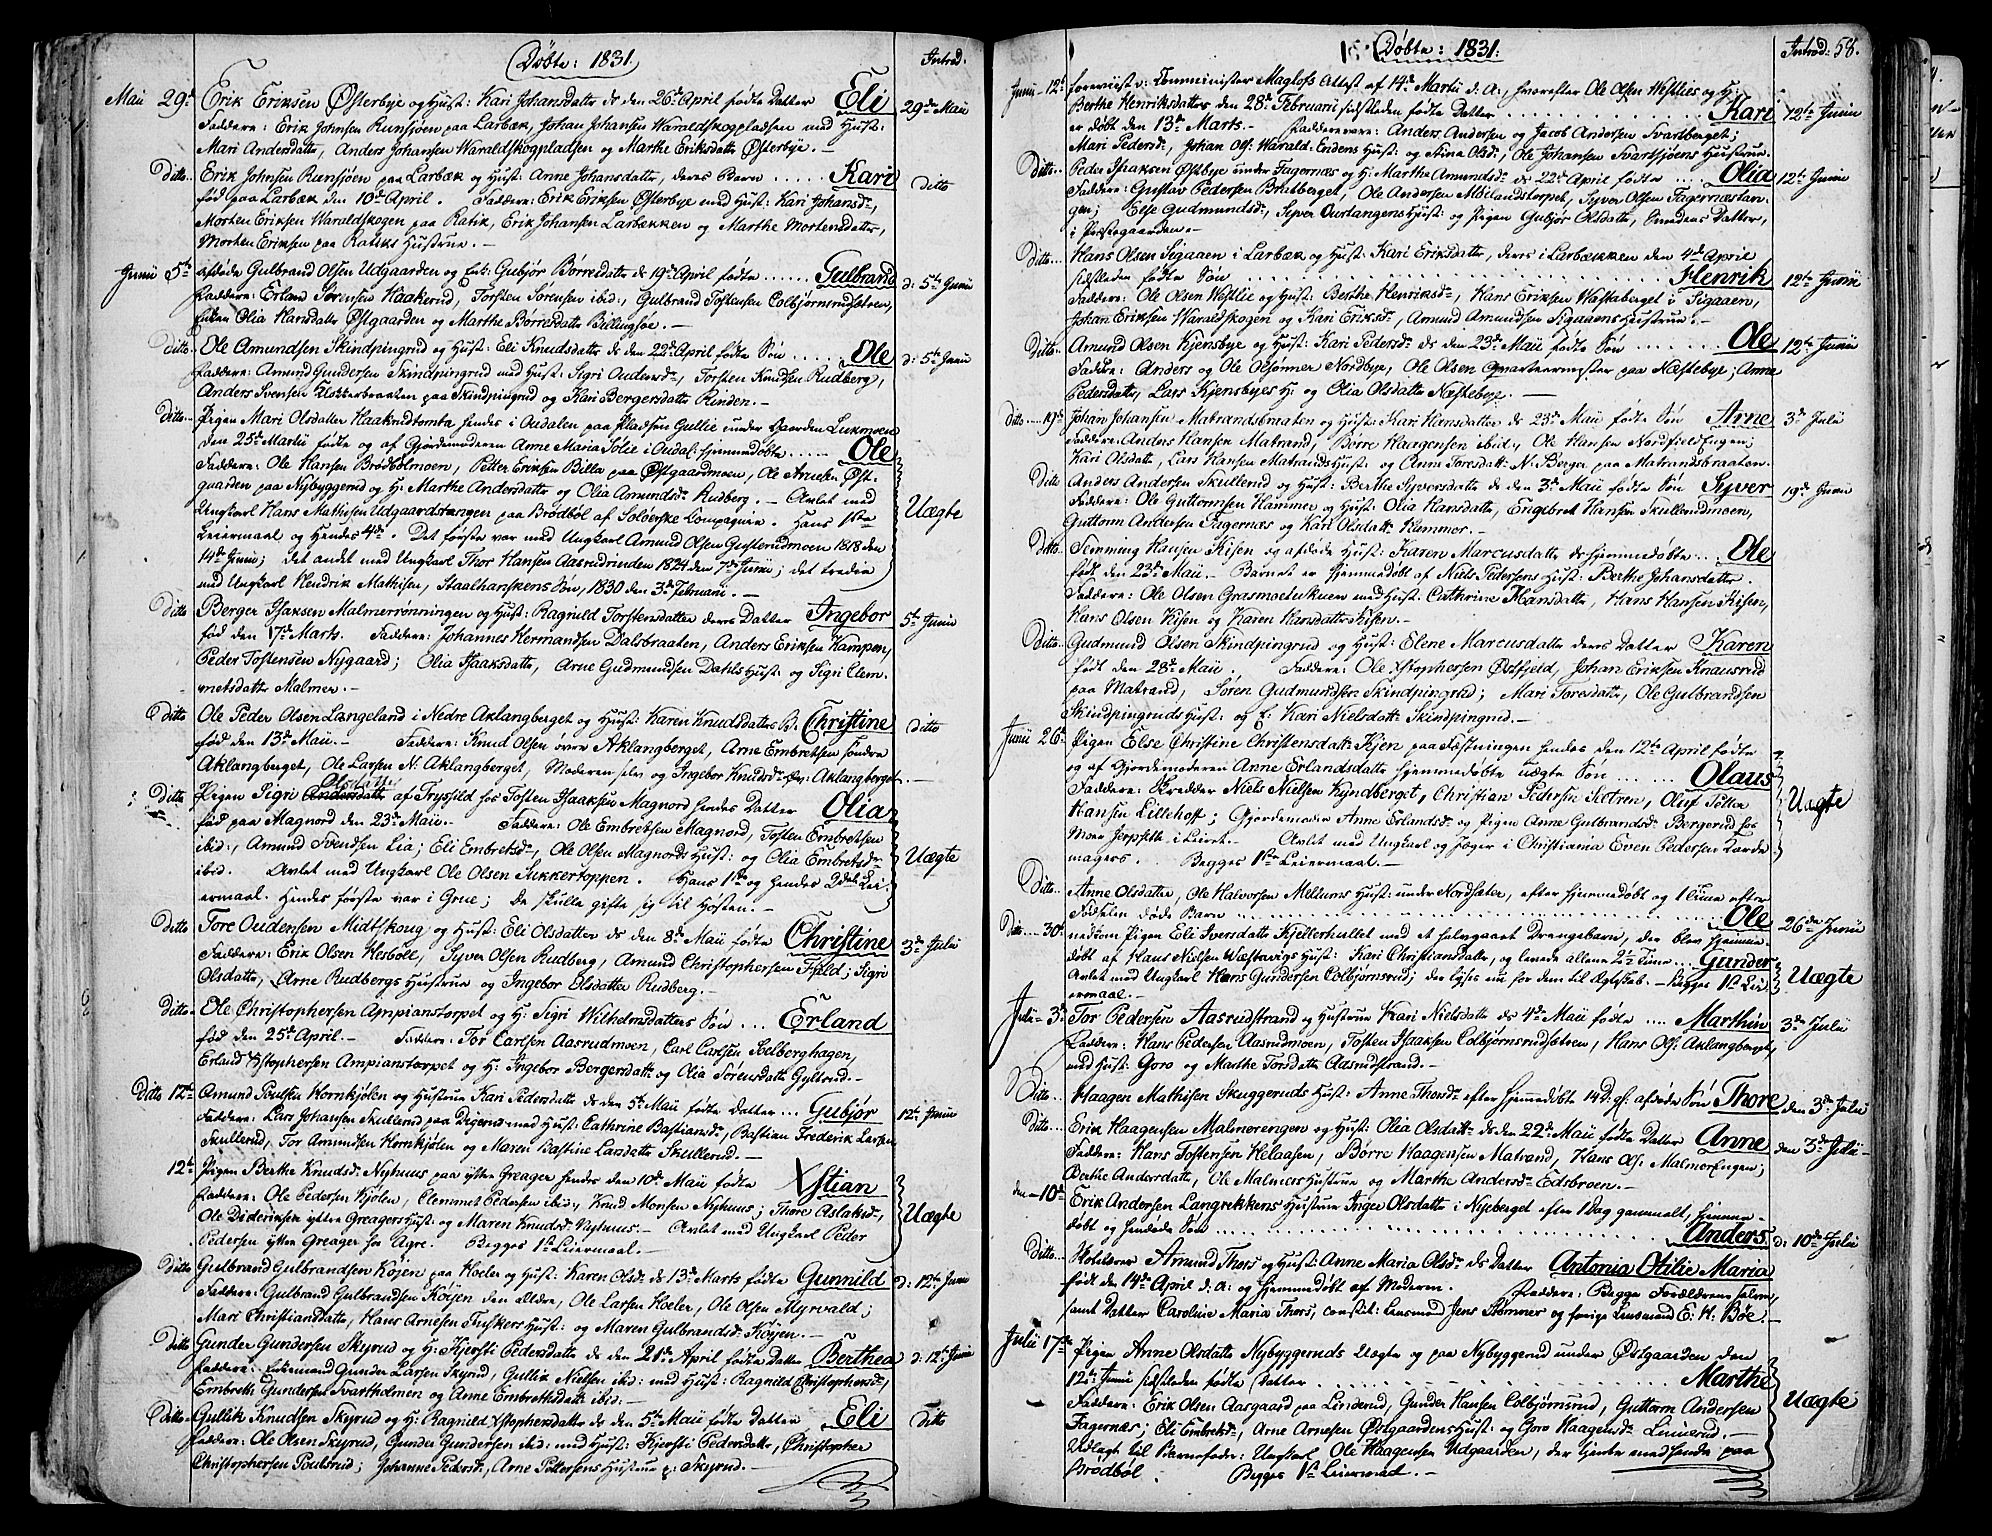 Döbte: 1831.
Introd:
Maii 29de Erik Eriksen Østerbye og Hust: Kari Johansdatter ds den 26de April fødte Datter Eli 29de Maii
Faddere: Erik Johnsen Runsjøen paa Larbæk, Johan Johansen Waraldskogpladsen med Hust:
Mari Andersdatter, Anders Johansen Waraldskogpladsen og Marthe Eriksdatter Østerbye. -
Ditto Erik Johnsen Runsjøen paa Larbæk og Hust: Anne Johansdatter, deres Barn ..... Kari ditto
fød paa Larbæk den 10de April. Faddere: Erik Eriksen Østerbye med Hust: Kari Johansd:,
Morten Eriksen Waraldskogen paa Ratik, Erik Johansen Larbækken og Marthe Mortensdatter,
Morten Eriksen paa Ratiks Hustrue. -
Junii 5te afdøde Gulbrand Olsen Udgaarden og Enk: Gubjør Børresdatter ds 19de April fødte ..... Gulbrand d: 5te Junii
Faddere: Erland Sørensen Haakerud, Torsten Sørensen ibid:, Gulbrand Tostensen Colbjørnsrudsetren,
Enken Olia Hansdatter Østgaarden og Marthe Børresdatter Billingsøe. -
Ditto Ole Amundsen Skindpingrud og Hust: Eli Knudsdatter ds den 22de April fødte Søn ..... Ole d: 5te Junii
Faddere: Amund Gundersen Skindpingrud med Hust: Sigri Oudensd:, Torsten Knudsen Rudberg,
Anders Svensen Klokkerbraaten paa Skindpingrud og Kari Bergersdatter Runden. -
Ditto Pigen Mari Olsdatter Haakrudtomta hendes i Oudalen paa Pladsen Gullie under Gaarden Lukmoen
den 25de Martii fødte og af Gjordemoderen Anne Maria Solie i Oudal: hjemmedøbte ..... Ole
Faddere: Ole Hansen Brødbølmoen, Petter Eriksen Billa paa Østgaardmoen, Ole Arnesen Øst-
gaarden paa Nybyggerud og H: Marthe Andersdatter og Olia Amundsd: Rudberg. - Avlet med
Ungkarl Hans Mathisen Udgaardstangen paa Brødbøl af Solørske Compagnie. Hans 1ste Uægte
Leiermaal og Hendes 4de. Det første var med Ungkarl Amund Olsen Gusterudmoen 1818 den
14de Junii; det andet med Ungkarl Thor Hansen Aasrudrunden 1824 den 7de Junii; det tredie
med Ungkarl Hendrik Mathisen, Staalhanskens Søn, 1830 den 3de Februarii. -
Ditto Berger Isaksen Malmerrønningen og Hust: Ragnild Torstensdatter deres Datter Ingebor 5te Junii
fød den 17de Marts. Faddere: Johannes Hermandsen Dalsbraaten, Anders Eriksen Kampen,
Peder Tostensen Nygaard; Olia Isaksdatter, Arne Gudmundsen Dahls Hust: og Sigri Clem-
metsdatter Malmer. -
Ditto Ole Peder Olsen Langeland i Nedre Aklangberget og Hust: Karen Knudsdatters B: Christine ditto
fød den 13de Maii. - Faddere: Knud Olsen øvre Aklangberget, Arne Embretsen søndre
Aklangberget, Ole Larsen N. Aklangberget, Moderen selv og Ingebor Knudsd: Aklangberget. -
Ditto Pigen Sigri Olsdatter af Trysfild hos Tosten Isaaksen Magnord hendes Datter Olia
fød paa Magnord den 23de Maii. - Faddere: Ole Embretsen Magnord, Tosten Embretsen
ibid:, Amund Svendsen Lia; Eli Embretsd:, Ole Olsen Magnords Hust: og Olia Embretsd: Uægte
ibid. Avlet med Ungkarl Ole Olsen Sukkertoppen. Hans 1ste og hendes 2det Lei-
ermaal. Hendes første var i Grue; De skulle gifte sig til Høsten. -
Ditto Tore Oudensen Midtskoug og Hust: Eli Olsdatter ds den 8de Maii fødte Christine 3de Julii
Faddere: Erik Olsen Hesbøll, Syver Olsen Rudberg, Amund Christophersen Fjeld; Sigri
Olsdatter, Arne Rudbergs Hustrue og Ingebor Olsdatter Rudberg. -
Ditto Ole Christophersen Ampianstorpet og H: Sigri Wilhelmsdatters Søn ... Erland
fød den 25de April. - Faddere: Tor Carlsen Aasrudmoen, Carl Carlsen Solberghagen,
Erland Xstophersen Ampianstorpet og H: Ingebor Bergersdatter og Olia Sørensdatter Gyltrud. -
Ditto 12te Amund Poulsen Hornkjølen og Hustrue Kari Pedersdatter ds den 5te Maii fødte Datter ... Gubjør 12te Junii
Faddere: Lars Johansen Skullerud paa Digerud med Hust: Cathrine Bastiansd:, Bastian Frederik Larsen
Skullerud, Tor Amundsen Hornkjølen og Maren Bastine Larsdatter Skullerud. -
12te Pigen Berthe Knudsd: Nyhuus paa yttre Greager hendes den 10de Maii fødte Xstian
Faddere: Ole Pedersen Kjølen, Clemmet Pedersen ibid:, Knud Monsen Nyhuus; Thore Aslaksd:,
Ole Dideriksen yttre Greagers Hust: og Maren Knudsd: Nyhuus. - Avlet med Ungkarl Peder Uægte
Pedersen yttre Greager hos Agre. Begges 1ste Leiermaal. -
Ditto Gulbrand Gulbrandsen Køyen paa Hoeler og Hust: Karen Olsd: ds 13de Marts fødte Gunnild d: 12te Junii
Faddere: Gulbrand Gulbrandsen Køyen den ældre, Ole Larsen Hoeler, Ole Olsen Myrvald;
Mari Christiansdatter, Hans Arnesen Tuskers Hust: og Maren Gulbrandsd: Køyen. -
Ditto Gunder Gundersen Skyrud og H: Kjersti Pedersdatter ds den 21de April fødte Datter Berthea d: 12te Junii
Faddere: Enkemand Gunder Larsen Skyrud, Gullik Nielsen ibid: med Hust: Ragnild Christophersd:,
Embrett Gundersen Svartholmen og Anne Embrethsdatter ibid:. -
Ditto Gullik Knudsen Skyrud og H: Ragnild Xstophersdatter ds den 5te Maii fødte Datter Eli Ditto
Faddere: Ole Olsen Skyrud, Gunder Gundersen ibid: med Hust: Kjersti Pedersdatter, Christopher
Christophersen Poulsrud; Johanne Pedersd:, Arne Pettersens Hustrue p: Skyrud. -
Döbte: 1831.
Introd: 58.
Junii 12te foreviist: Comminister Maglofs Attest af 14de Martii d. A:, hvorefter Ole Olsen Westlies og H:
Berthe Henriksdatter den 28de Februarii sidstleden fødte Datter ..... Kari 12te Junii
er døbt den 13de Marts. - Faddere vare: Anders Andersen og Jacob Andersen Svartberget;
Mari Pedersd:, Johan Ols: Warald-Endens Hust: og Stina Olsd:, Ole Johansen Svartsjøens Hustrue.
Ditto Peder Isaksen Østbye under Fagernæs og H: Marthe Amundsd: ds 22de April fødte ... Olia 12te Junii
Faddere: Gustav Pedersen Bruberget, Ole Andersen Møllandstorpet, Syver Olsen Fagernæstan-
gen; Else Gudmundsd:, Syver Ourtangens Hust: og Pigen Gubjør Olsdatter, Smedens Datter,
i Prestegaarden. -
Ditto Hans Olsen Sigaaen i Larbæk og Hust: Kari Eriksdatter, deres i Larbækken den 4de April
sidstleden fødte Søn ..... Henrik 12te Junii
Faddere: Ole Olsen Westlie og Hust: Berthe Henriksd:, Hans Eriksen Wastaberget i Sigaaen,
Johan Eriksen Waraldskogen og Kari Eriksd:, Amund Amundsen Sigaaens Hustrue. -
Ditto Amund Olsen Kjensbye og Hust: Kari Pedersd: ds den 23de Maii fødte Søn ..... Ole 12te Junii
Faddere: Anders og Ole Olsønner Nordbye, Ole Olsen Quarteermester paa Næstebye; Anne
Pedersdatter, Lars Kjensbyes H: og Olia Olsdatter Næstebye. -
Ditto 19de Johan Johansen Matrandsbraaten og Hust: Kari Hansdatter ds 23de Maii fødte Søn Arne 3de Julii
Faddere: Anders Hansen Matrand, Børre Haagensen ibid:, Ole Hansen Nordfieldengen;
Kari Olsdatter, Lars Hansen Matrands Hust: og Anne Toresdatt: N: Berger paa Matrandsbraaten.
Ditto Anders Andersen Skullerud og Hust: Berthe Syversdatter ds den 3de Maii fødte Søn Syver 19de Junii
Faddere: Ole Guttormsen Hammer og Hust: Olia Hansdatter, Engebret Hansen Skullerudmoen,
Guttorm Andersen Fagernæs og Kari Olsdatt: Hammer. -
Ditto Semming Hansen Kisen og afdøde Hust: Karen Marcusdatter ds hjemmedøbte ... Ole
født den 23de Maii. - Barnet er hjemmedøbt af Niels Pedersens Hust: Berthe Johansdatter.
Faddere: Ole Olsen Grasmoebekken med Hust: Cathrine Hansdatter, Hans Hansen Kisen,
Hans Olsen Kisen og Karen Hansdatter Kisen. -
Ditto Gudmund Olsen Skindpingrud og Hust: Elene Marcusdatter deres Datter Karen
født den 28de Maii. Faddere: Ole Xstophersen Østfjeld, Johan Eriksen Knausrud
paa Matrand, Søren Gudmundsen Skindpingrud; Mari Toresdatter, Ole Gulbrandsen
Skindpingruds Hust: og E: Kari Nielsdatt: Skindpingrud. -
Junii 26de Pigen Else Christine Christensdatt: Kjen paa Fæstningen hendes den 12te April fødte
og af Gjordemoderen Anne Erlandsdatter hjemmedøbte uægte Søn ..... Olaus
Faddere: Skredder Niels Nielsen Kyndberget, Christian Pedersen Sætren, Oluf Petter
Hansen Lillehoff; Gjordemoder Anne Erlandsd: og Pigen Anne Gulbrandsd: Bergerud hos Uægte
Moer Jerpsett i Leiret. - Avlet med Ungkarl og Jæger i Christiania Even Pedersen Korde
magers. Begges 1ste Leiermaal. -
Ditto Anne Olsdatter, Ole Halvorsen Mellums Hust: under Nordsæter, efter hjemmedøbt og 1 Time efter
Fødselen døde Barn ..... Ole 26de Junii
Ditto 30te nedkom Pigen Eli Iversdatter Kjellerhullet med et halvgaaet Drengebarn, der blev hjemme-
døbt af Hans Nielsen Wæstbvigs Hust: Kari Christiansdatter, og levede allene 2½ Time ... Gunder Uægte
Avlet med Ungkarl Hans Gundersen Colbjørnsrud; der lyses nu for dem til Ægteskab. - Begges 1ste Lei-
ermaal. -
Julii 3de Tor Pedersen Aasrudstrand og Hustrue Kari Nielsdatter ds 4de Maii fødte .... Marthin 3de Julii
Faddere: Hans Pedersen Aasrudmoen, Tosten Isaaksen Colbjørnsrudsetren, Hans Ols: Aklangberget,
med Hust: Goro og Marthe Torsdatter Aasrudstrand. -
Ditto Haagen Mathisen Skuggeruds Hust: Anne Thorsd: efter hjemmedøbte 14 D: gl. afdøde Søn Thore den 3de Julii
Ditto Erik Haagensen Malmerengen og Hust: Olia Olsdatt: ds den 22de Maii fødte Datter Anne den 3de Julii
Faddere: Hans Tostensen Helaasen, Børre Haagensen Matrand, Hans Ols: Malmerengen;
Berthe Andersdatter, Ole Malmers Hustrue og Marthe Andersd: Edsbroen. -
den 10de Erik Andersen Langrækkens Hustrue Inger Olsdatter i Nyeberget efter 1 Dag gammelt, hjemme-
døbt og hendøde Søn ..... Anders d: 10de Julii
Ditto Holtfører Amund Thors og Hust: Anne Maria Olsd: ds Datter Antonia Otilie Maria
født den 14de April d. A: og hjemmedøbt af Moderen. Faddere: Begge Forældrene selve,
samt Datter Caroline Maria Thors, constit: Lensmand Jens Strømner og forrige Lensmand E: H: Bøe. -
Julii 17de Pigen Anne Olsdatter Nybyggeruds Uægte og paa Nybyggerud under Østgaarden den
12te Junii sidstleden fødte Datter ..... Marthe
Faddere: Erik Olsen Aasgaard paa Linderud, Gunder Hansen Colbjørnsrud, Guttorm Andersen Uægte
Fagernæs; Eli Embretsd:, Arne Arnesen Østgaardens Hust: og Goro Haagensd: Linnerud. -
Udlagt til Barnefader: Ungkarl Ole Haagensen Udgaarden, der tiente med hende paa
Brødbøl. Begges 1ste Leiermaal. -